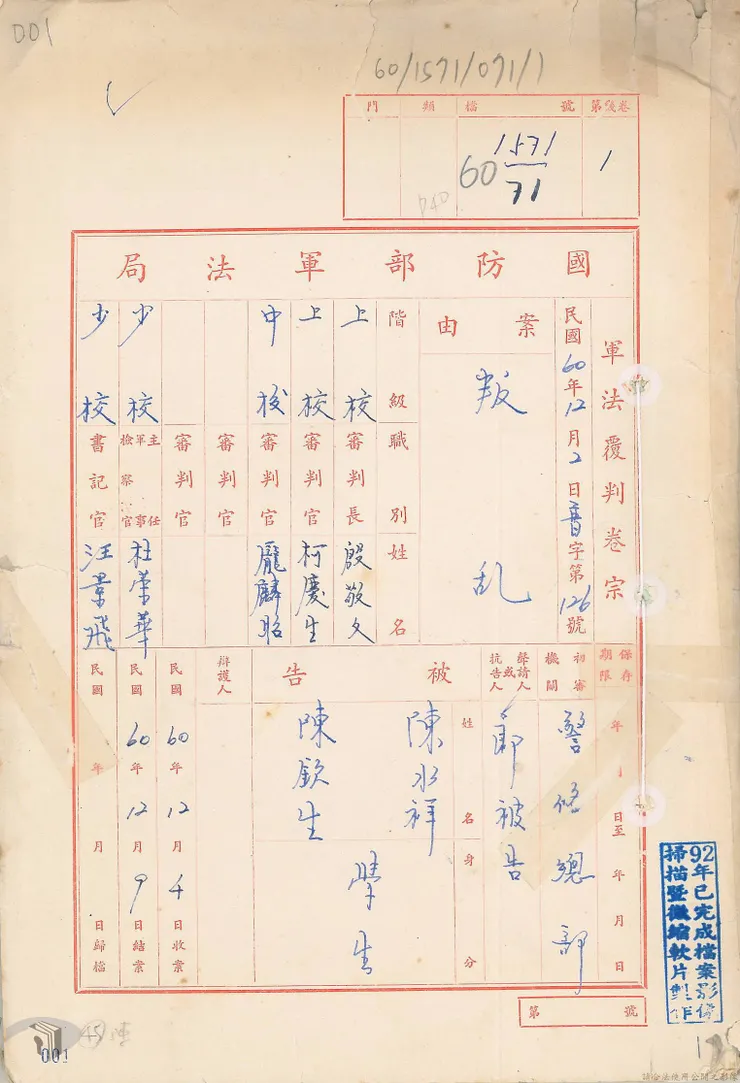 001
60/1571/071/1
門 類 檔號 第幾卷
60 1571/71 1
040
國防部軍法局
軍法覆判卷宗
民國60年12月2日普字第126號
案由
叛乱
階級 職別 姓名
上校 審判長 殷敬文
上校 審判官 柯慶生
中校 審判官 龎麟昭
審判官
審判官
少校 主任軍事檢察官 杜榮華
少校 書記官 汪景飛
保存期限 年 月 日至 年 月 日
初審機關 警備總部
聲請人或抗告人 即被告
被告
姓名 陳水祥 陳欽生
身分 學生
辯護人
民國60年12月4日收案
民國60年12月9日結案
民國 年 月 日歸檔
第 號
92年已完成檔案影像
掃描暨微縮軟片製作
001
請合法使用公開之影像